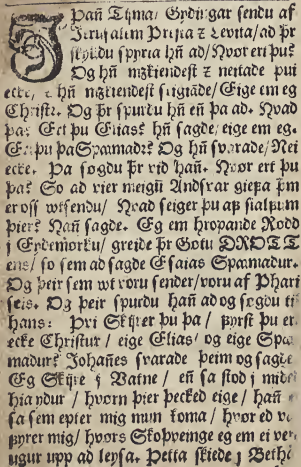 JPan Tijma/ Gydingar sendu af
Jerusalem Presta ꝛ Levita/ad þr
skylldu spyria hn̄ ad/ Hvor ert þu?
Og hn̄ mzkiendest ꝛ neitade þui
ecke/ ꝛ hn̄ mzkiendest sigiāde/ Eige em eg
Christr. Og þr spurdu hn̄ en̄ þa ad. Hvad
þa? Ert þu Elias? hn̄ sagde/ eige em eg.
Ert þu þa Spamadr? Og hn̄ svarade/ Nei
ecke. Þa sogdu þr vid han̄. Hvor ert þu
þa? So ad vier meigū Andsvar giefa þm̄
er oss wtsendu/ Hvad seiger þu af sialfum
þier? Han̄ sagde. Eg em hropande Rodd
i Eydemørku/ greide þr Gøtu DROTT
ens/ so sem ad sagde Esaias Spamadur.
Og þeir sem wt voru sender/voru af Phari
seis. Og þeir spurdu han̄ ad og søgdu til
hans: Þvi Skijrer þu þa/ fyrst þu ert
ecke Christur/ eige Elias/ og eige Spa
madur? Johan̄es svarade þeim og sagde
Eg Skijre i Vatne/ en̄ sa stod i midel
hia ydur/ hvorn þier þecked eige/ han̄ e
sa sem epter mig mun koma/ hvor ed va
fyrer mig/ hvors Skoþveinge eg em ei ver
ugur upp ad leysa. Þetta skiede i Bethe